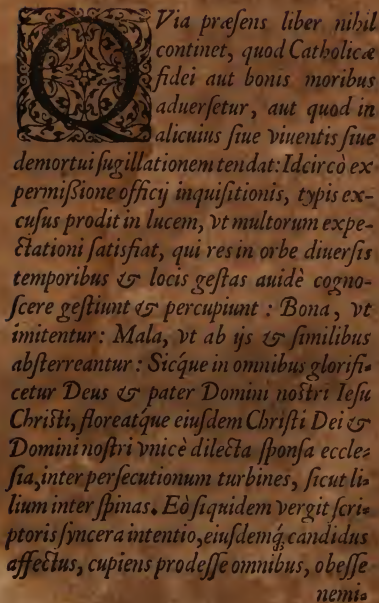 QVia præsens liber nihil
continet, quod Catholicæ
fidei aut bonis moribus
aduersetur, aut quod in
alicuius siue viuentis siue
demortui sugillationem tendat: Idcircò ex
permißione officij inquisitionis, typis ex-
cusus prodit in lucem, vt multorum expe-
ctationi satisfiat, qui res in orbe diuersis
temporibus & locis gestas auidè cogno-
scere gestiunt & percupiunt : Bona, vt
imitentur: Mala, vt ab ijs & similibus
absterreantur: Sicq́ue in omnibus glorifi-
cetur Deus & pater Domini nostri Iesu
Christi, floreatq́ue eiusdem Christi Dei &
Domini nostri vnicè dilecta sponsa eccle-
sia, inter persecutionum turbines, sicut li-
lium inter spinas. Eò siquidem vergit scri-
ptoris syncera intentio, eiusdemq́; candidus
affectus, cupiens prodesse omnibus, obesse
nemi-